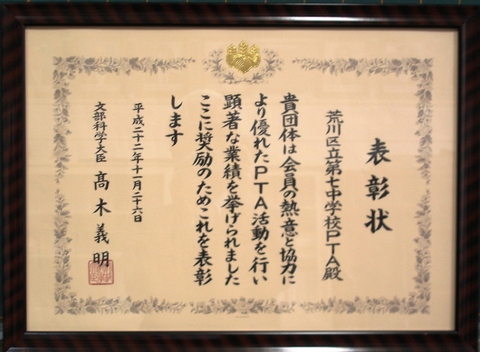 表彰状
荒川区立第七中学校PTA殿
貴団体は会員の熱意と協力に
より優れたPTA活動を行い
顕著な業績を挙げられました
ここに奨励のためこれを表彰
します
平成二十二年十一月二十六日
文部科学大臣 髙木義明